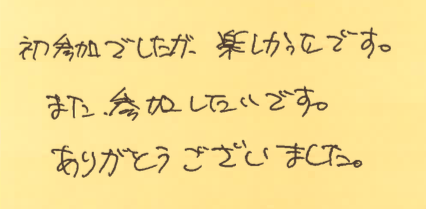 初参加でしたが、楽しかったです。
また、参加したいです。
ありがとうございました。